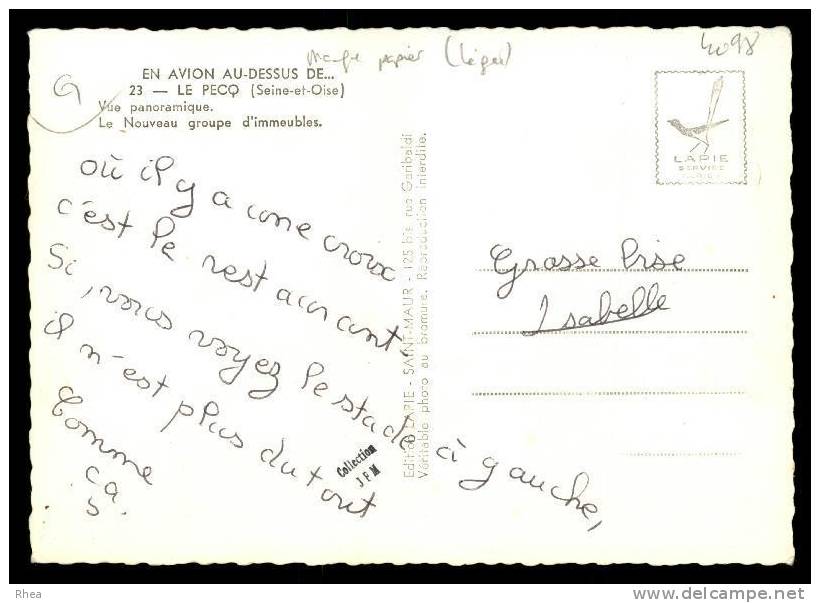 Manque papier (léger)
4098
G
EN AVION AU-DESSUS DE...
23 — LE PECQ (Seine-et-Oise)
Vue panoramique.
Le Nouveau groupe d'immeubles.
où il y a une croix
c'est le restaurant.
Si, vous voyez le stade à gauche,
il n'est plus du tout
comme
ça.
Edition LAPIE - SAINT-MAUR - 125 bis rue Garibaldi
Véritable photo au bromure. Reproduction interdite.
LAPIE
SERVICE
Grosse bise
Isabelle
Collection
J F M
Rhea
www.delcampe.net